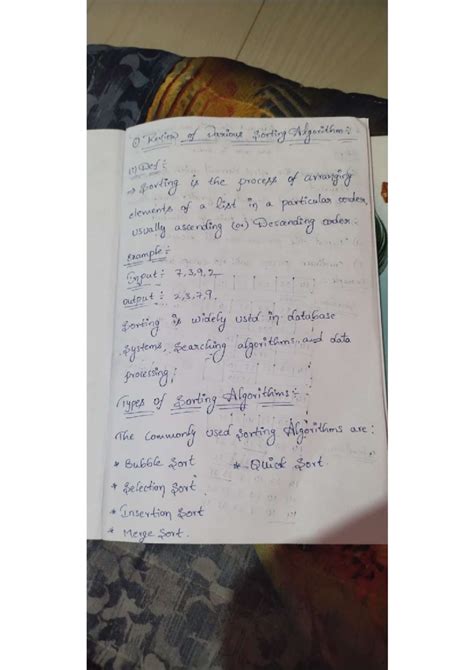 1) Review of Various Sorting Algorithms :-
(i) Def :-
⇒ Sorting is the process of arranging
elements of a list in a particular order,
usually ascending (or) Descending order.
Example :-
Input : 7,3,9,2
output : 2,3,7,9.
Sorting is widely used in database
systems, Searching algorithms and data
processing.
Types of Sorting Algorithms :-
The commonly used Sorting Algorithms are :
* Bubble Sort * Quick Sort
* Selection Sort
* Insertion Sort
* Merge Sort.